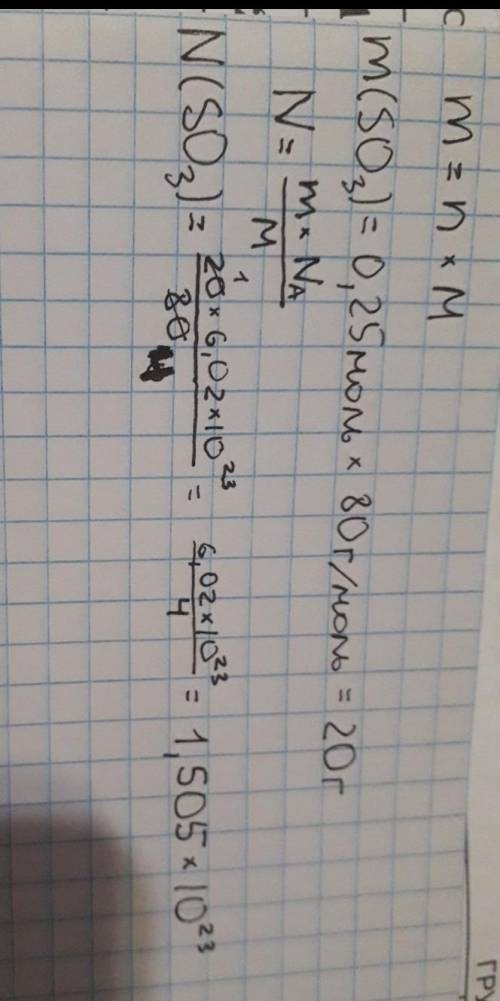 m = n × M
m(SO₃) = 0,25моль × 80г/моль = 20г
N = m × Nₐ / M
N(SO₃) = 20 ¹ × 6,02×10²³ / 80 4 = 6,02×10²³ / 4 = 1,505 × 10²³